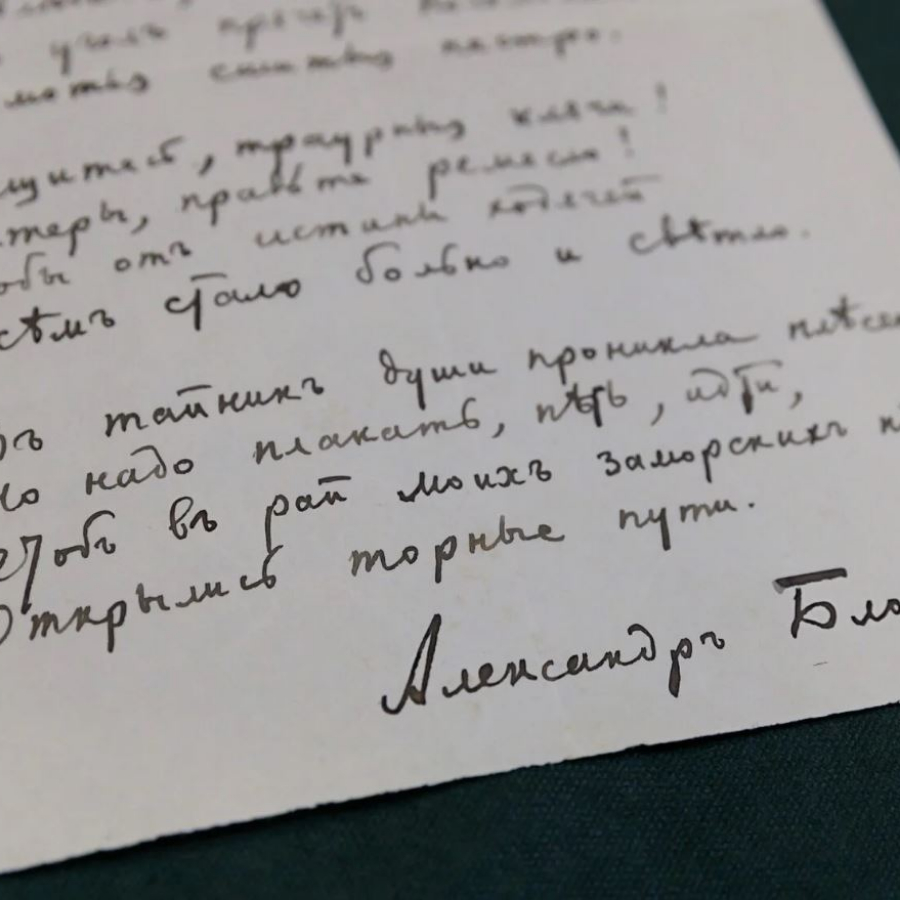 уголъ прячетъ
мотья сшитыя пестро.
щитесь, траурныя клячи!
теры, правьте ремесло!
обы отъ истины ходячей
сѣмъ стало больно и свѣтло.
въ тайникъ души проникла плѣсен
Но надо плакать, пѣть, идти,
Чтобъ въ рай моихъ заморскихъ п
Открылись торные пути.
Александръ Бло